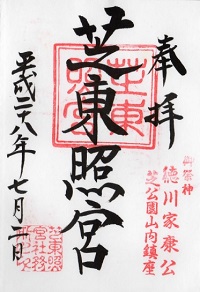 奉拝
御祭神
徳川家康公
芝公園山内鎮座
芝東照宮
平成二十八年七月二日
芝東照宮
芝東照宮社務所